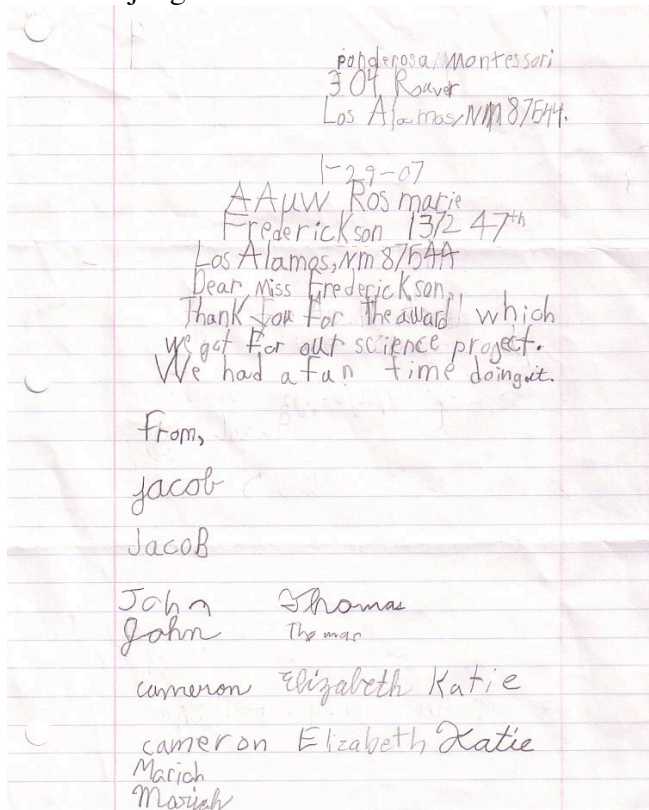 ponderosa, Montessori
304 Rouver
Los Alamos, NM 87544.
1-29-07
AAUW Ros marie
Frederickson 1372 47th
Los Alamos, NM 87544
Dear Miss Frederickson,
Thank you for the award which
we got for our science project.
We had a fun time doing it.
From,
jacob
JacoB
John Thomas
John Thomas
cameron Elizabeth Katie
cameron Elizabeth Katie
Mariah
Mariah